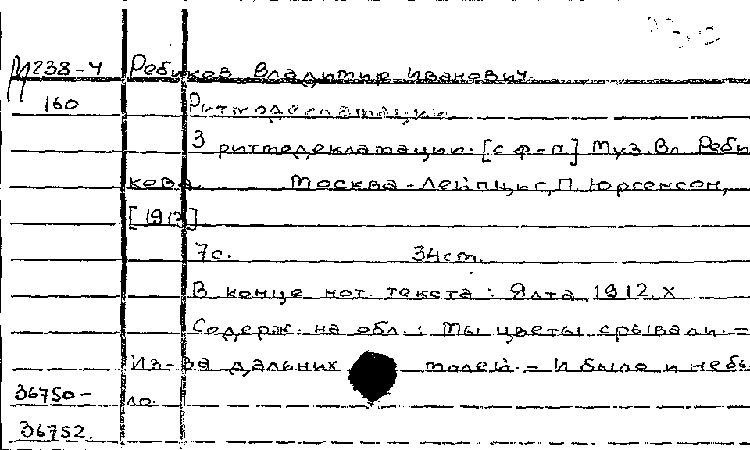 М238-4 Ребиков Владимир Иванович
160 Ритмодекламации
3 ритмодекламации. [с ф-п] Муз. Вл. Реби
кова. Москва-Лейпциг, П. Юргенсон,
[1913]
7с. 34см.
В конце нот. текста: Ялта, 1912. X
Содерж. на обл.: Мы цветы срывали. =
Из-за дальних полей. = И было и небы
36750- ло.
36752.